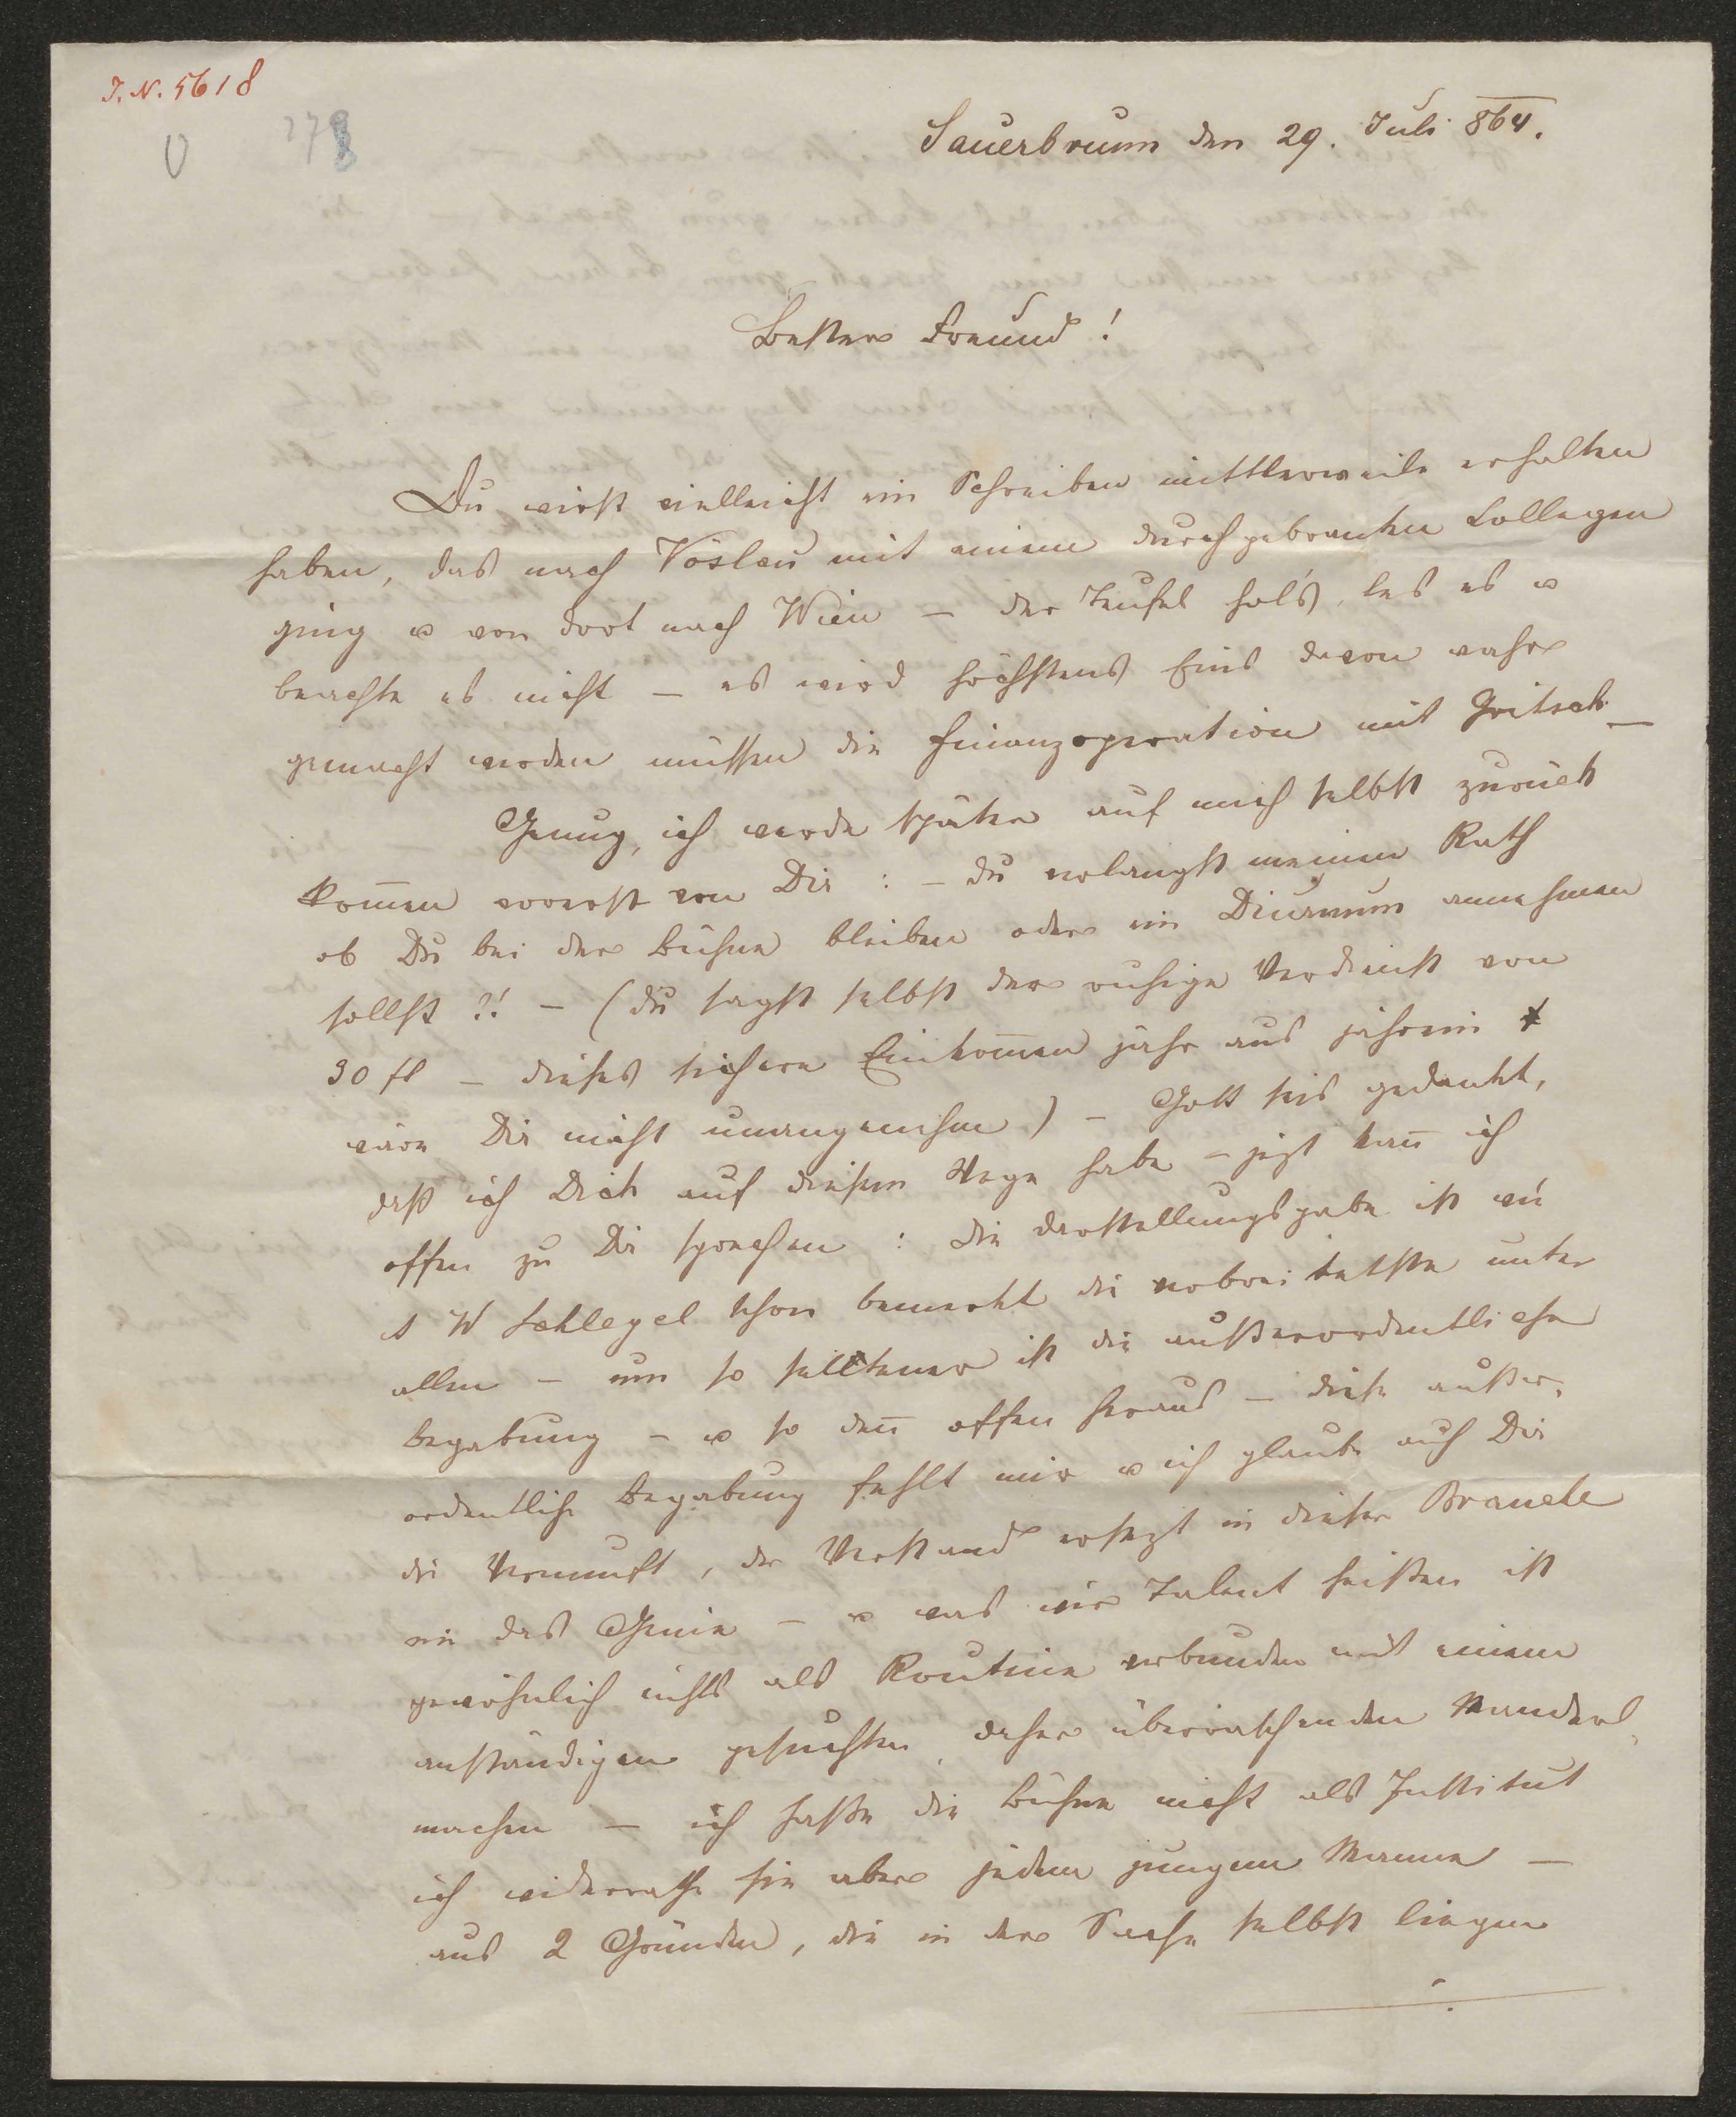 J. N. 5618
278
Sauerbrunn den 29. Juli 864.
Bester Freund!
Du wirst vielleicht ein Schreiben mittlerweile erhalten
haben, das nach Vöslau mit einem durchgebranten Collegen
ging u von dort nach Wien – der Teufel hol's, les es u
beachte es nicht – es wird höchstens Eins davon wahr
gemacht werden müssen die Finanzoperation mit Gritsch –
Genug, ich werde später auf mich selbst zurück
kom̄en vorerst von Dir : – du verlangst meinen Rath
ob Du bei der Bühne bleiben oder ein Diurnum annehmen
sollst ?! – (du sagst selbst der ruhige Verdienst von
30 fl – dieses sichere Einkom̄en jahr aus jahrein
wäre Dir nicht unangenehm) – Gott seis gedankt,
daß ich Dich auf diesem Wege habe – jezt kan̄ ich
offen zu Dir sprechen : die Darstellungsgabe ist wie
A W Schlegel schon bemerkt die verbreitetste unter
allen – um so seltener ist die außerordentliche
Begabung – u so den̄ offen heraus – diese außer,
ordentliche Begabung fehlt mir u ich glaube auch Dir
die Vernunft, der Verstand ersezt in dieser Branche
nie das Genie – u was wir Talent heißen ist
gewöhnlich nichts als Routine verbunden mit einem
anständigen gesuchten, daher überraschenden Manderl,
machen – ich hasse die Bühne nicht als Institut
ich widerrathe sie aber jedem jungem Manne –
aus 2 Gründen, die in der Sache selbst liegen